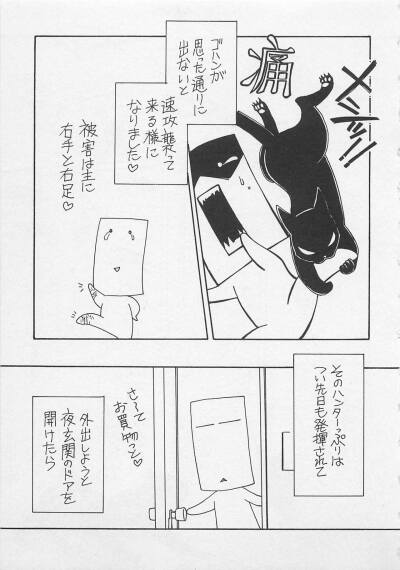 メシッ!!
痛
ゴハンが
思った通りに
出ないと
速攻襲って
来る様に
なりました♡
被害は主に
右手と右足♡
そのハンターっぷりは
つい先日も発揮されて
さ〜て
お買物っと♡
外出しようと
夜玄関のドアを
開けたら